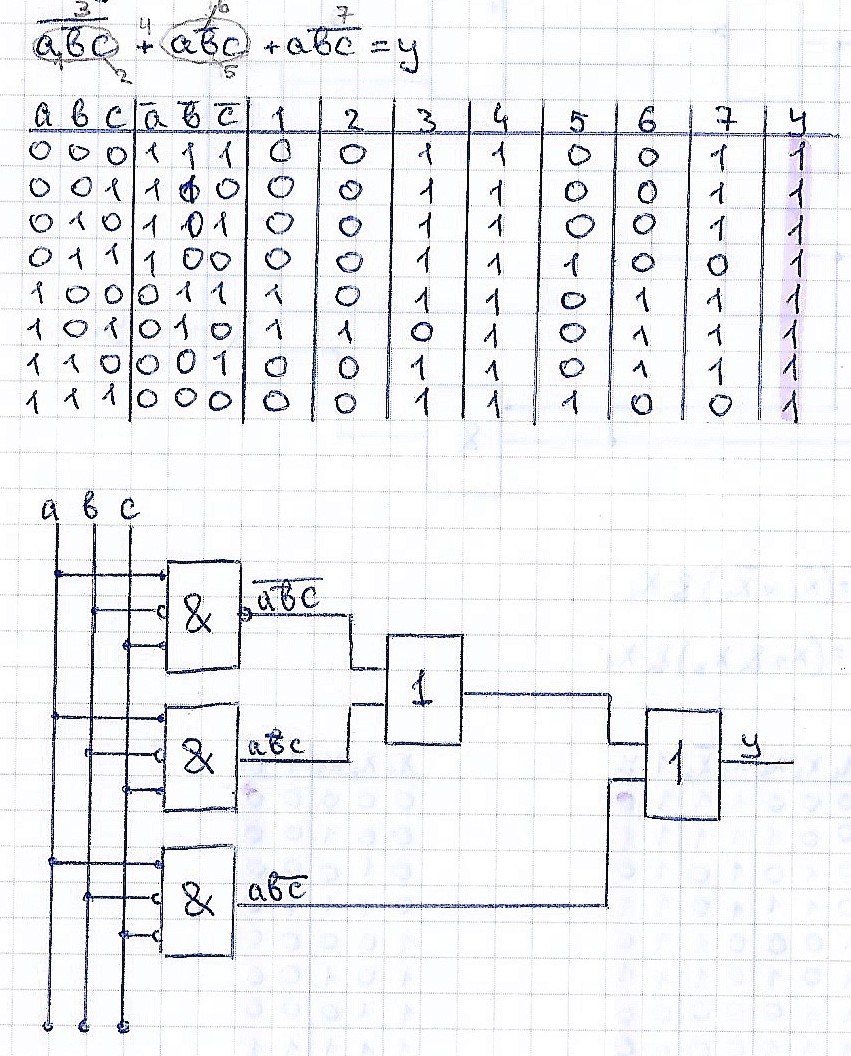 3 4 6 7
a̅в̅̅c̅ + aв̅c̅ + aв̅c̅ = y
1 2 5
a в c a̅ в̅ c̅ 1 2 3 4 5 6 7 y
0 0 0 1 1 1 0 0 1 1 0 0 1 1
0 0 1 1 1 0 0 0 1 1 0 0 1 1
0 1 0 1 0 1 0 0 1 1 0 0 1 1
0 1 1 1 0 0 0 0 1 1 1 0 0 1
1 0 0 0 1 1 1 0 1 1 0 1 1 1
1 0 1 0 1 0 1 1 0 1 0 1 1 1
1 1 0 0 0 1 0 0 1 1 0 1 1 1
1 1 1 0 0 0 0 0 1 1 1 0 0 1
a в c
& a̅в̅̅c̅
1
& aв̅c
1 y
& aв̅c̅